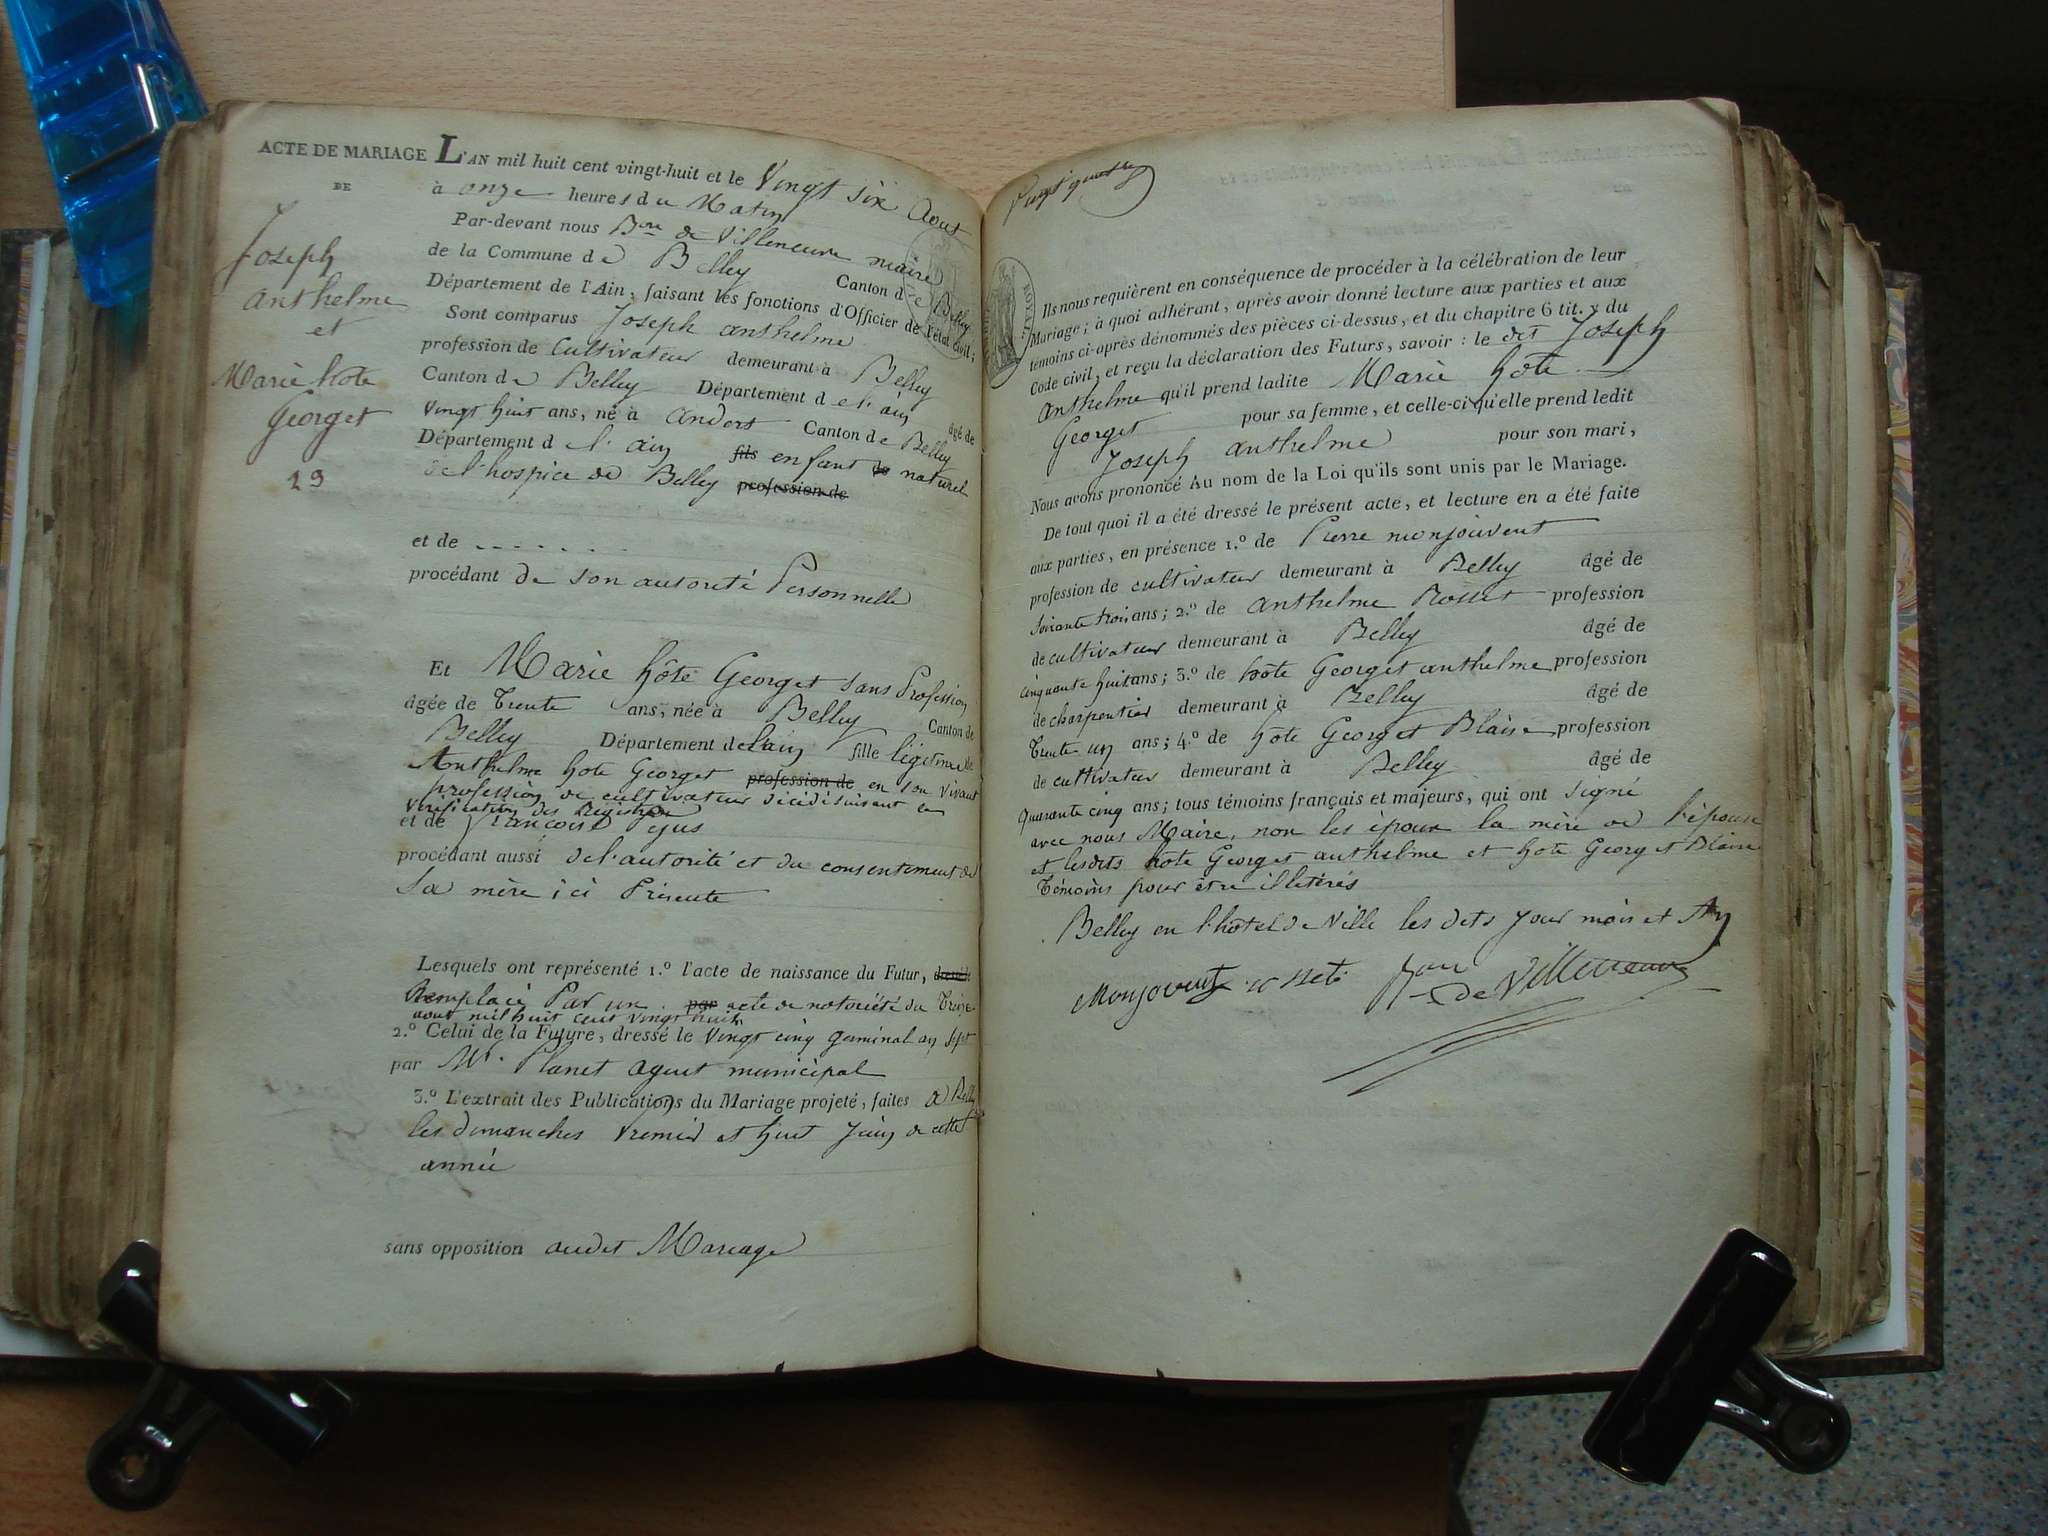 ACTE DE MARIAGE
DE
Joseph
anthelme
et
Marie hote
Georget
19
L'AN mil huit cent vingt-huit et le Vingt six Aout
à onze heures du Matin
Par-devant nous Bon de Villeneuve maire
de la Commune de Belley Canton de Belley
Département de l'Ain, faisant les fonctions d'Officier de l'état civil;
Sont comparus Joseph anthelme
profession de Cultivateur demeurant à Belley
Canton de Belley Département de l'ain âgé de
vingt huit ans, né à andert Canton de Belley
Département de l'ain fils enfant de naturel
de l'hospice de Belley profession de
et de
procédant de son autorité Personnelle
Et Marie hôte Georget sans Profession
âgée de Trente ans, née à Belley Canton de
Belley Département de l'ain fille légitime de
Anthelme hote Georget profession de en son vivant
profession de cultivateur décédé suivant la
vérification des Registres
et de
procédant aussi de l'autorité et du consentement de
Sa mère ici Présente
Lesquels ont représenté 1.º l'acte de naissance du Futur, dressé le
Remplacé Par un par acte de notoriété du Treize
aout mil huit cent vingt huit
2.º Celui de la Future, dressé le vingt cinq germinal an sept
par Mr. Planet agent municipal
3.º L'extrait des Publications du Mariage projeté, faites a Belley
les dimanches Premier et huit Juin de cette
année
sans opposition audit Mariage
Vingt quatre
ROYAL
Ils nous requièrent en conséquence de procéder à la célébration de leur
Mariage; à quoi adhérant, après avoir donné lecture aux parties et aux
témoins ci-après dénommés des pièces ci-dessus, et du chapitre 6 tit. v du
Code civil, et reçu la déclaration des Futurs, savoir: le dit Joseph
anthelme qu'il prend ladite Marie hôte
Georget pour sa femme, et celle-ci qu'elle prend ledit
Joseph anthelme pour son mari,
Nous avons prononcé Au nom de la Loi qu'ils sont unis par le Mariage.
De tout quoi il a été dressé le présent acte, et lecture en a été faite
aux parties, en présence 1.º de Pierre monjouvent
profession de cultivateur demeurant à Belley âgé de
soixante trois ans; 2.º de anthelme Rosset profession
de cultivateur demeurant à Belley âgé de
cinquante huit ans; 3.º de hôte Georget anthelme profession
de charpentier demeurant à Belley âgé de
Trente un ans; 4.º de hôte Georget Blaise profession
de cultivateur demeurant à Belley âgé de
quarante cinq ans; tous témoins français et majeurs, qui ont signé
avec nous Maire, non les époux la mère de l'épouse
et lesdits hôte Georget anthelme et hote Georget Blaise
Témoins pour être illetérés
Belley en l'hotel de Ville les dits jour mois et An
Monjouvent Bon de Villeneuve